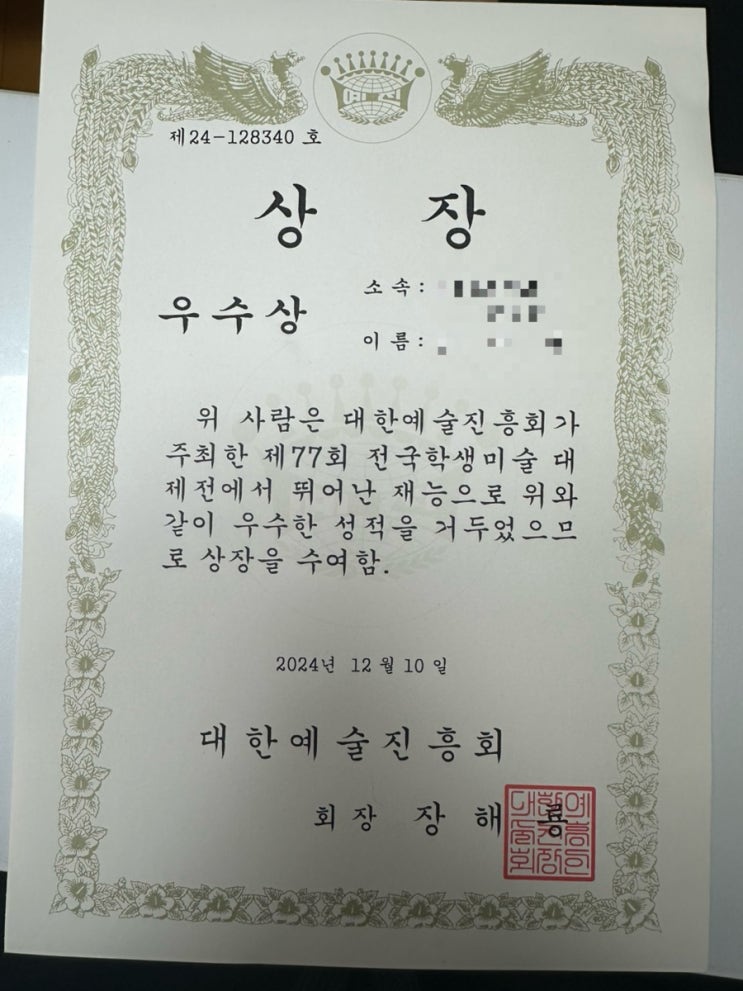 예진
제24-128340 호
상 장
우수상
소 속 :
이 름 :
위 사람은 대한예술진흥회가
주최한 제77회 전국학생미술 대
제전에서 뛰어난 재능으로 위와
같이 우수한 성적을 거두었으므
로 상장을 수여함.
2024년 12월 10일
대한예술진흥회
회장 장 해 룡